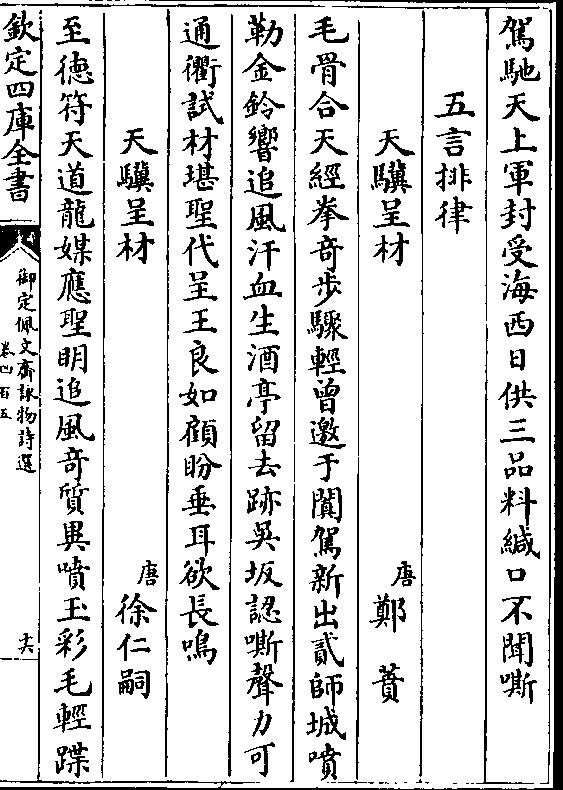 駕馳天上軍封受海西日供三品料緘口不聞嘶
五言排律
天驥呈材 唐 鄭蕡
毛骨合天經拳奇步驟輕曾邀于闐駕新出貳師城噴
勒金鈴響追風汗血生酒亭留去跡吳坂認嘶聲力可
通衢試材堪聖代呈王良如顧盼垂耳欲長鳴
天驥呈材 唐 徐仁嗣
至德符天道龍媒應聖明追風奇質異噴玉彩毛輕蹀
欽定四庫全書
御定佩文齋詠物詩選
卷四百五
十六